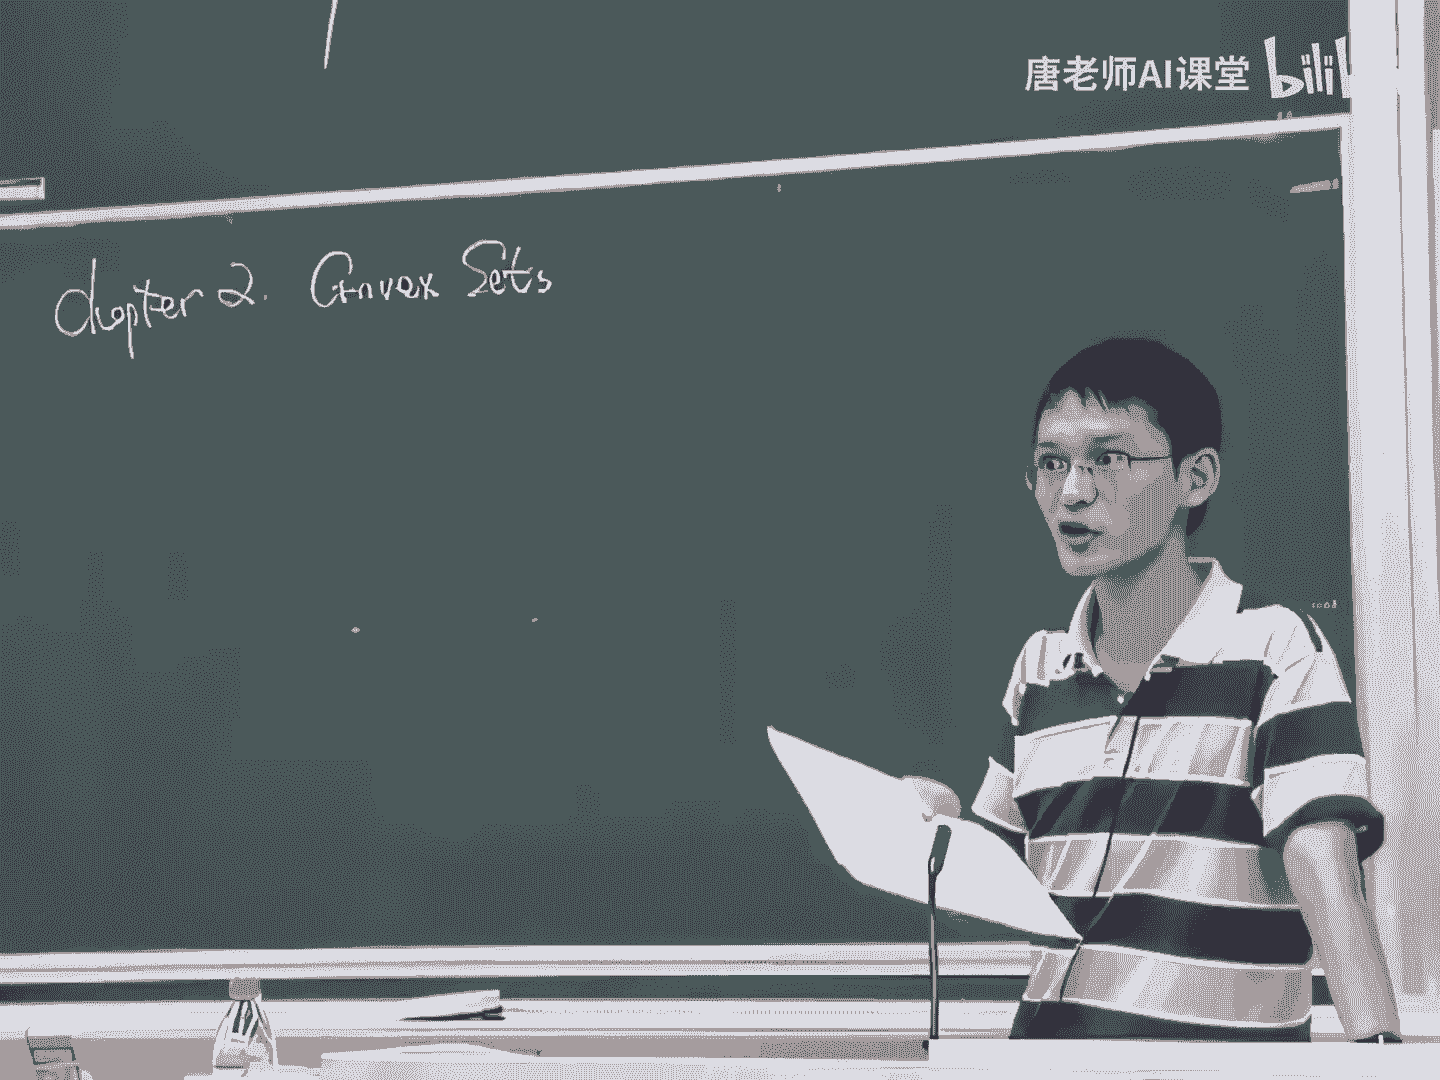 唐老师AI课堂 bilib
Chapter 2. Convex Sets